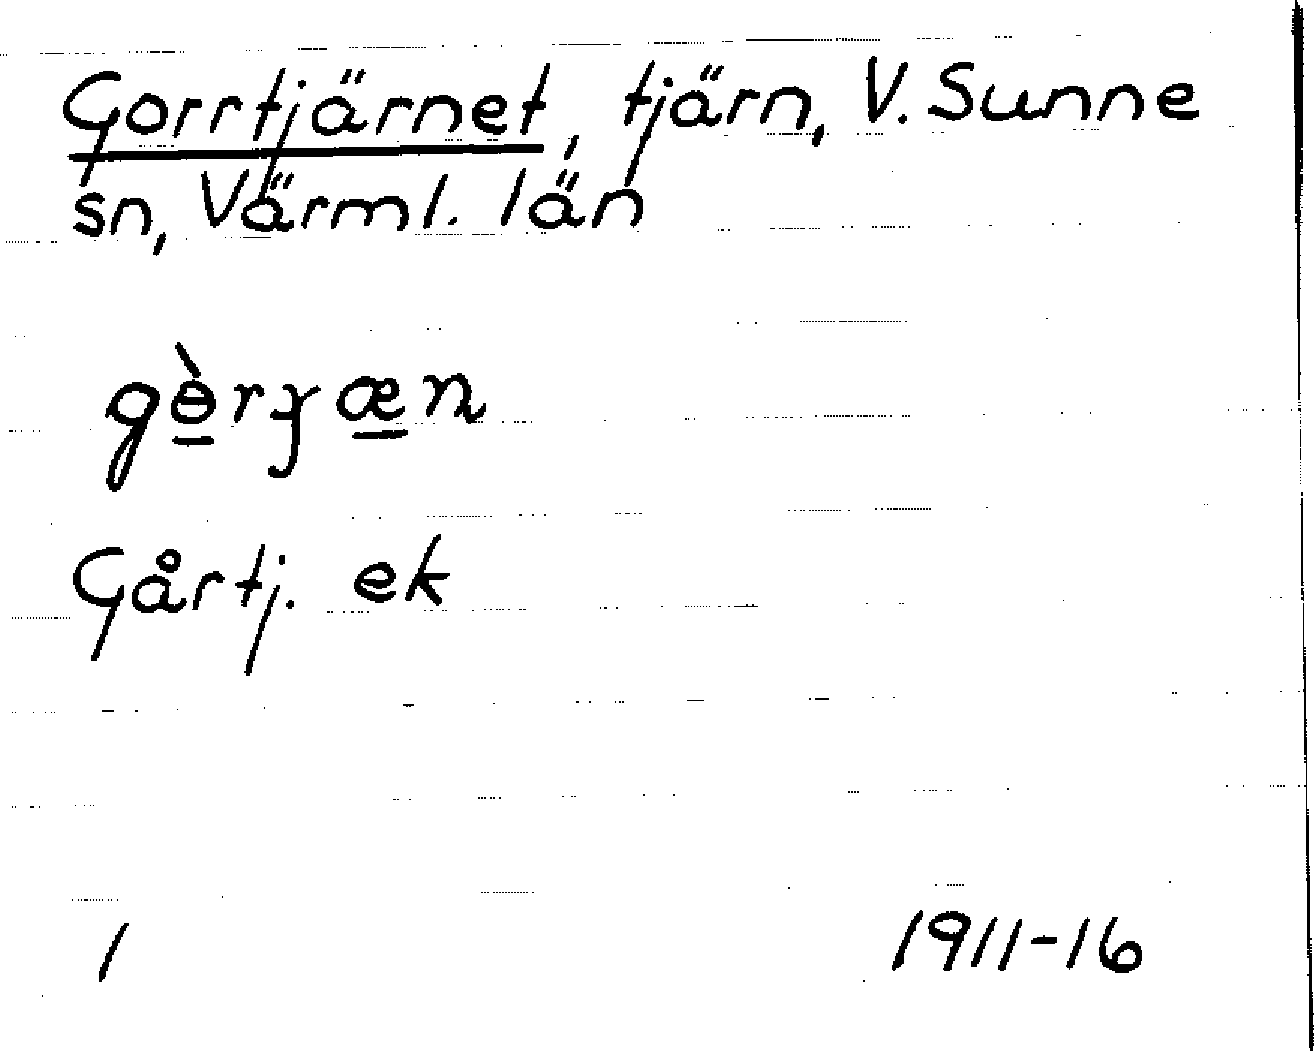 Gorrtjärnet, tjärn, V. Sunne
sn, Värml. län
Gårtj. ek
1 1911-16